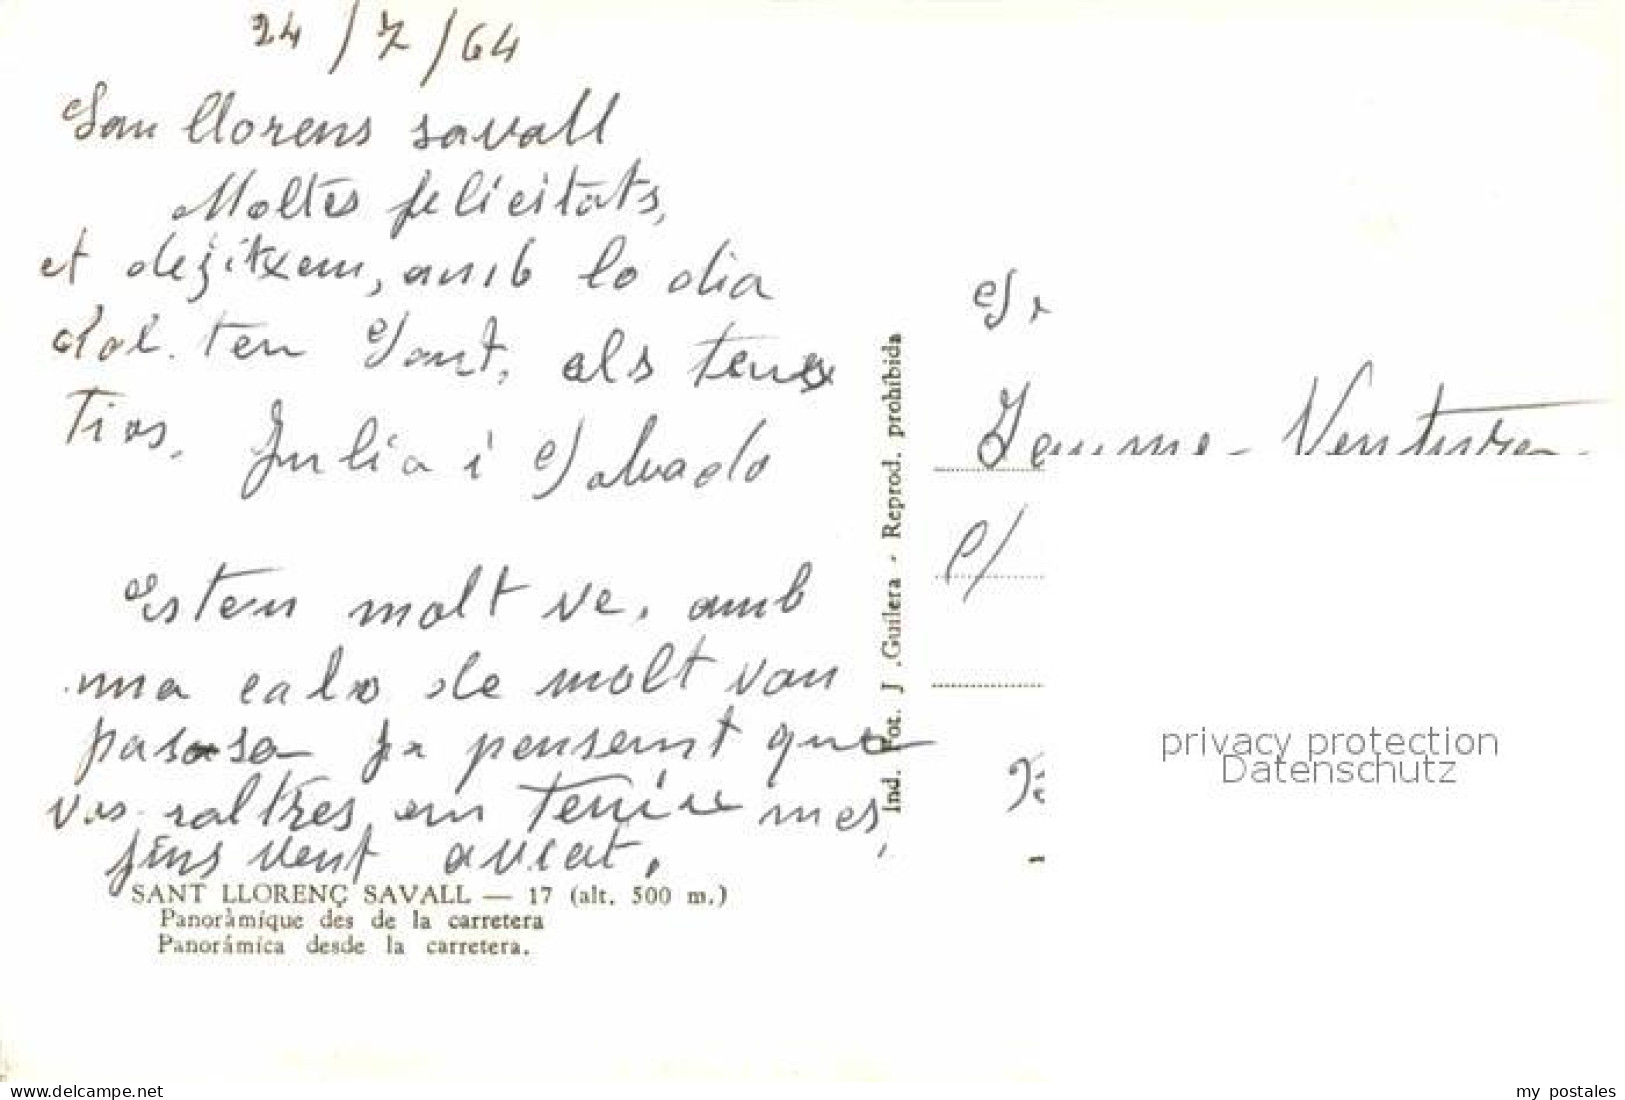 24/7/64
San llorens savall
Moltes felicitats,
et dezitxem, amb lo dia
dal. teu Sant, als teus
Tios. Julia i Salvado
Estem molt ve, amb
una calo de molt van
pasasa ja pensemt que
vos-raltres em tenire mes,
fins vent aviat.
SANT LLORENÇ SAVALL — 17 (alt. 500 m.)
Panoràmique des de la carretera
Panorámica desde la carretera.
Ind. Fot. J. Guilera - Reprod. prohibida
Sr
Jaume - Ventura -
C/
privacy protection
Datenschutz
www.delcampe.net
my postales